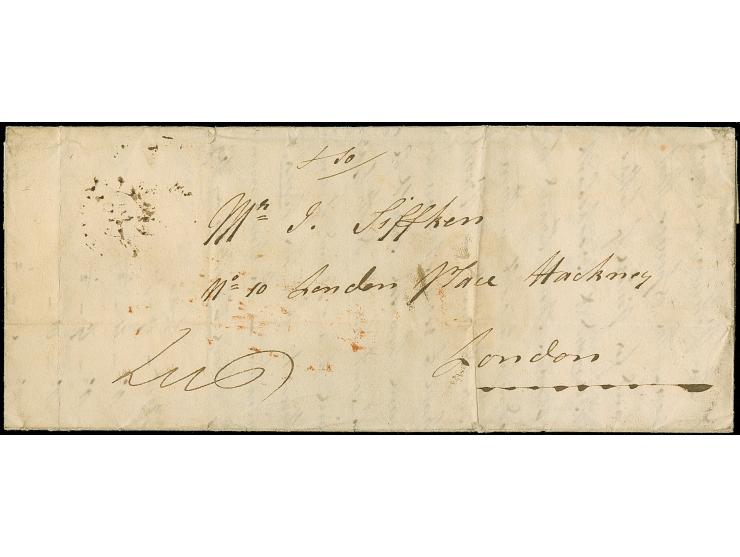 Mr J. Siffken
No 10 London Place Hackney
London